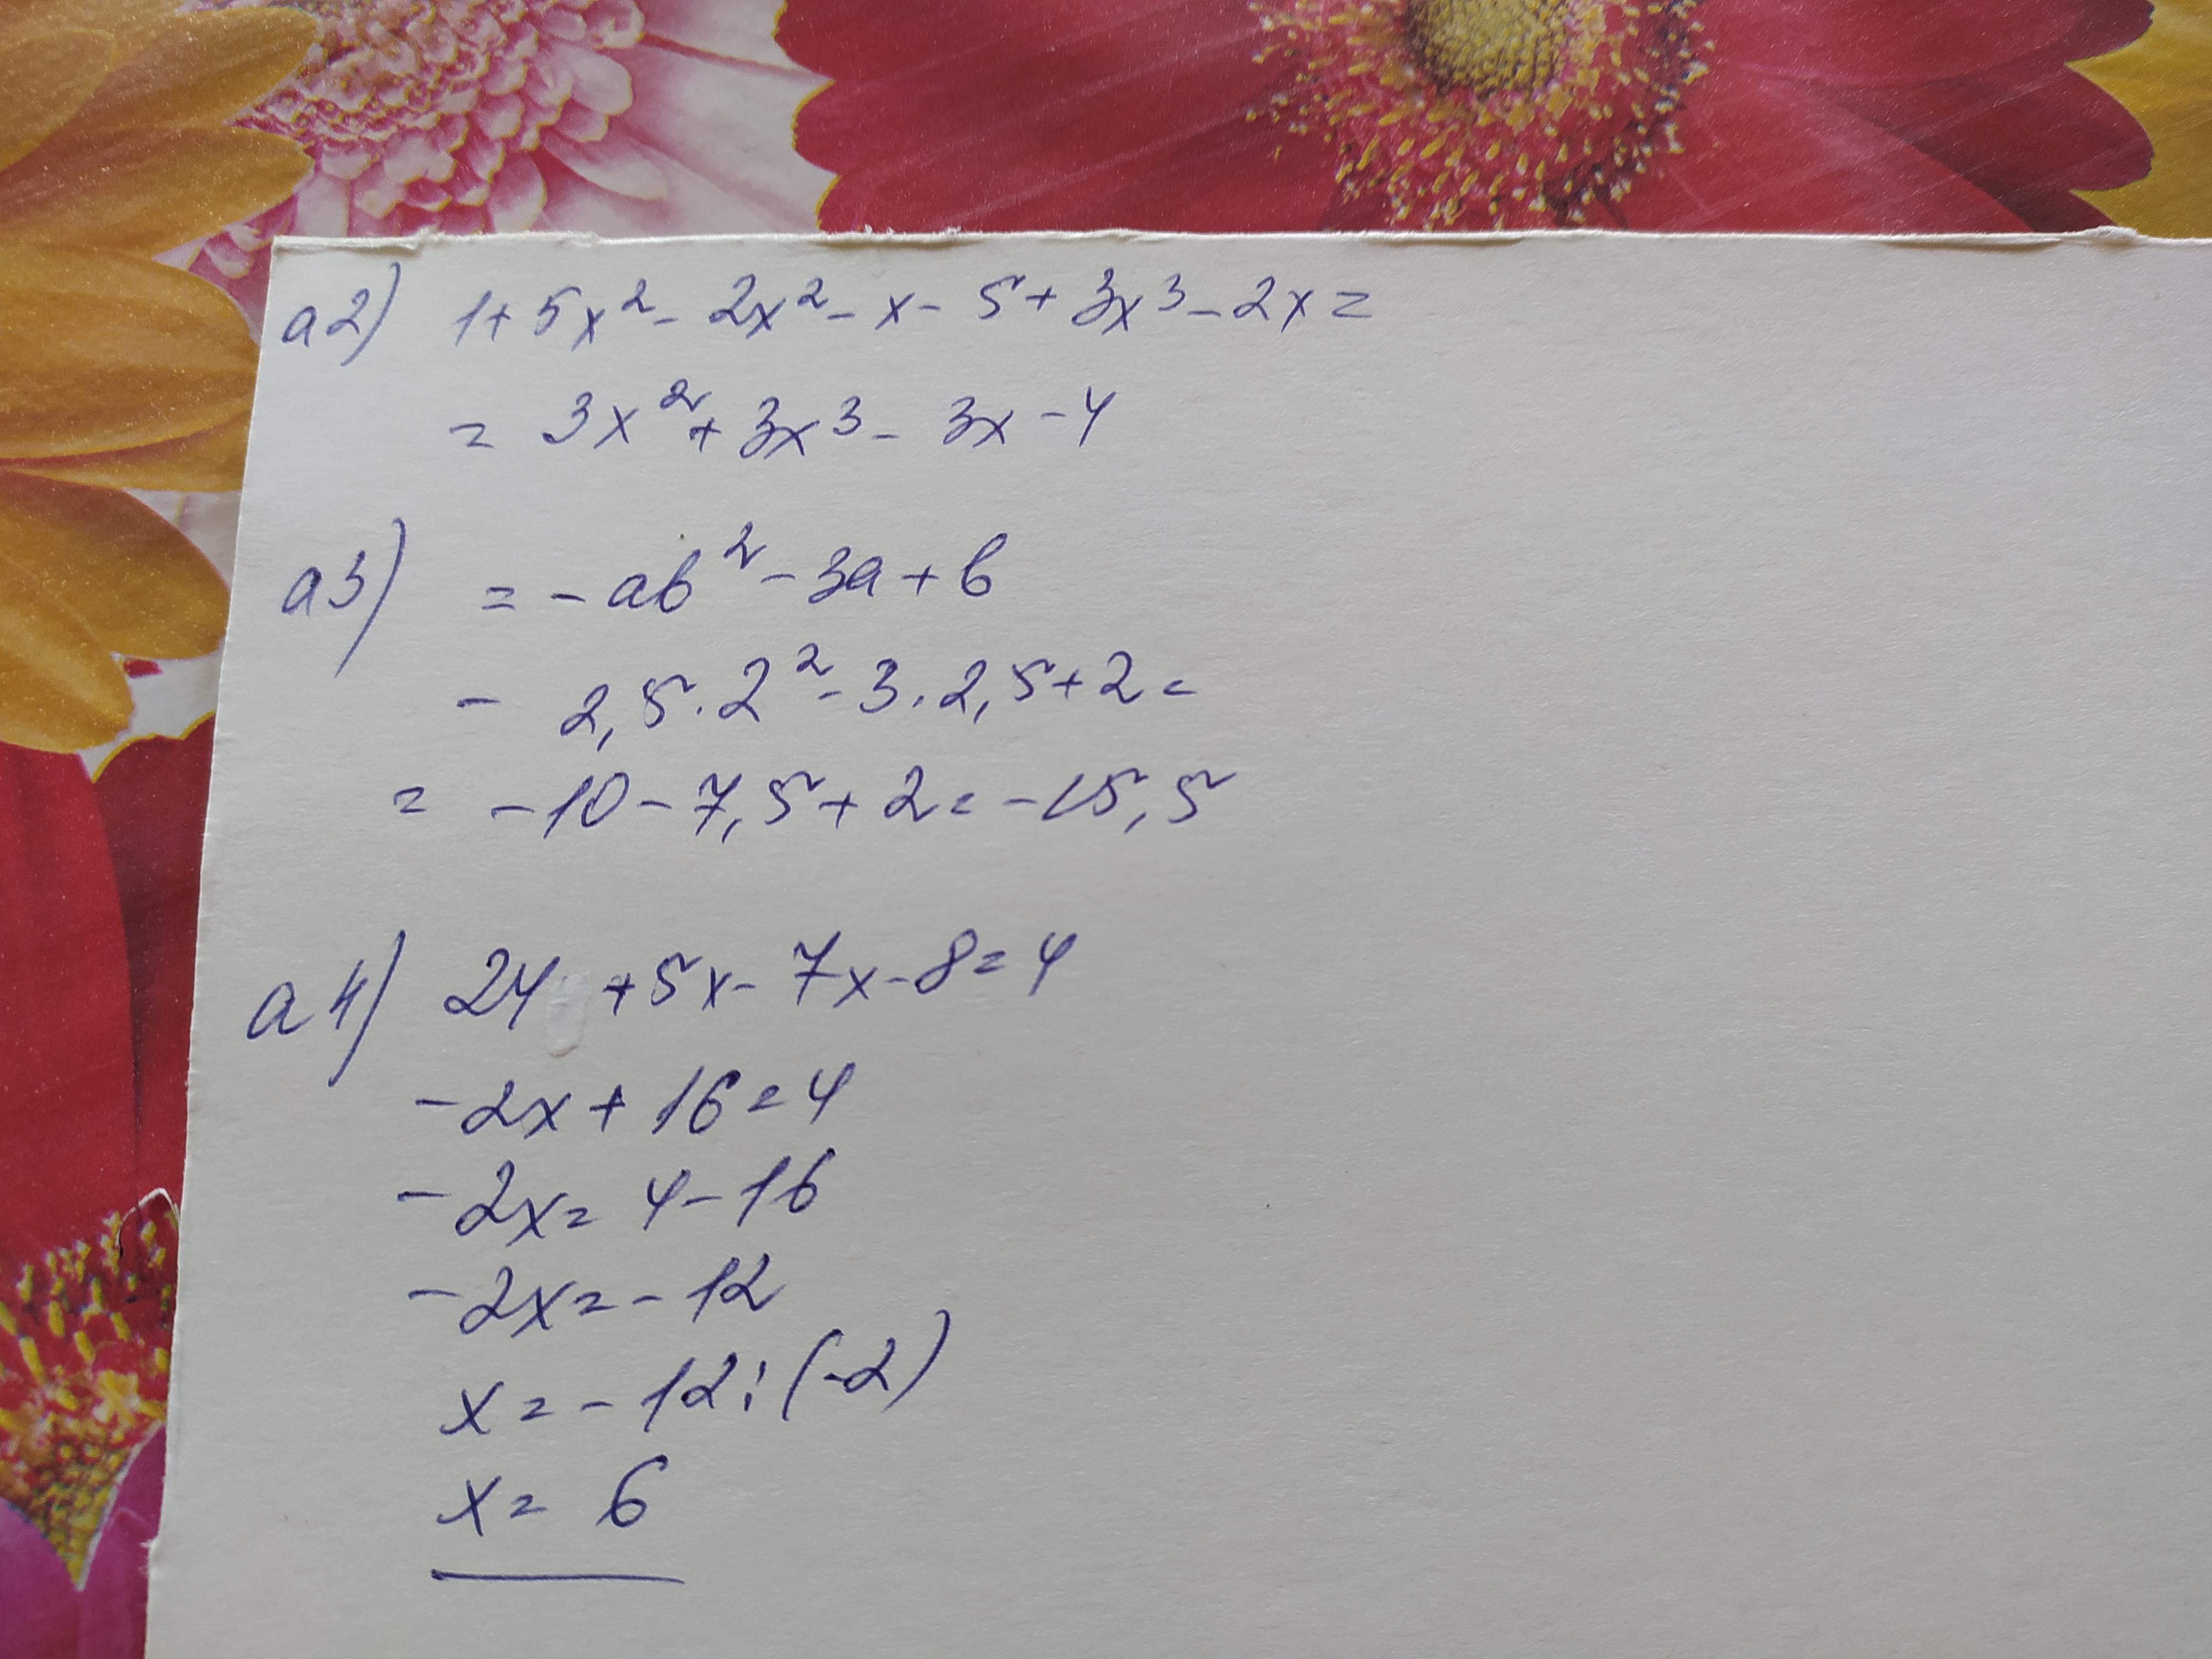 а2) 1+5x²-2x²-x-5+3x³-2x=
= 3x²+3x³-3x-4
а3) = -ab²-3a+b
- 2,5·2²-3·2,5+2=
= -10-7,5+2=-15,5
а4) 24 +5x-7x-8=4
-2x+16=4
-2x=4-16
-2x=-12
x=-12:(-2)
x=6